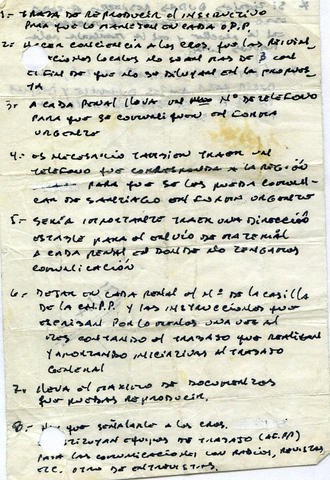 1.- TRATA DE REPRODUCIR EL INSTRUCTIVO
PARA QUE LO MANEJEN EN CADA O.P.P.
2.- HACER CONCIENCIA A LOS CROS. QUE LAS REIVINDI
CACIONES LOCALES NO SEAN MAS DE 3 CON
EL FIN DE QUE NO SE DILUYAN EN LA PROPUES
TA
3.- A CADA PENAL LLEVA UN Nº DE TELEFONO
PARA QUE SE COMUNIQUEN EN FORMA
URGENTE
4.- ES NECESARIO TAMBIEN TRAER UN
TELEFONO QUE CORRESPONDA A LA REGIÓN
PARA QUE SE LOS PUEDA COMUNI-
CAR DE SANTIAGO EN FORMA URGENTE
5.- SERÍA IMPORTANTE TRAER UNA DIRECCIÓN
ESTABLE PARA EL ENVIO DE MATERIAL
A CADA PENAL EN DONDE NO TENGAMOS
COMUNICACIÓN
6.- DEJAR EN CADA PENAL EL Nº DE LA CASILLA
DE LA C.N.P.P. Y LAS INSTRUCCIONES QUE
ESCRIBAN POR LO MENOS UNA VEZ AL
MES CONTANDO EL TRABAJO QUE REALIZAN
Y APORTANDO INICIATIVAS AL TRABAJO
GENERAL
7.- LLEVA EL MAXIMO DE DOCUMENTOS
QUE PUEDAS REPRODUCIR.
8.- HAY QUE SEÑALARLE A LOS CROS.
CONSTITUYAN EQUIPOS DE TRABAJO
PARA LAS COMUNICACIONES CON RADIOS, REVISTAS
ETC. OTRO DE ENTREVISTAS.